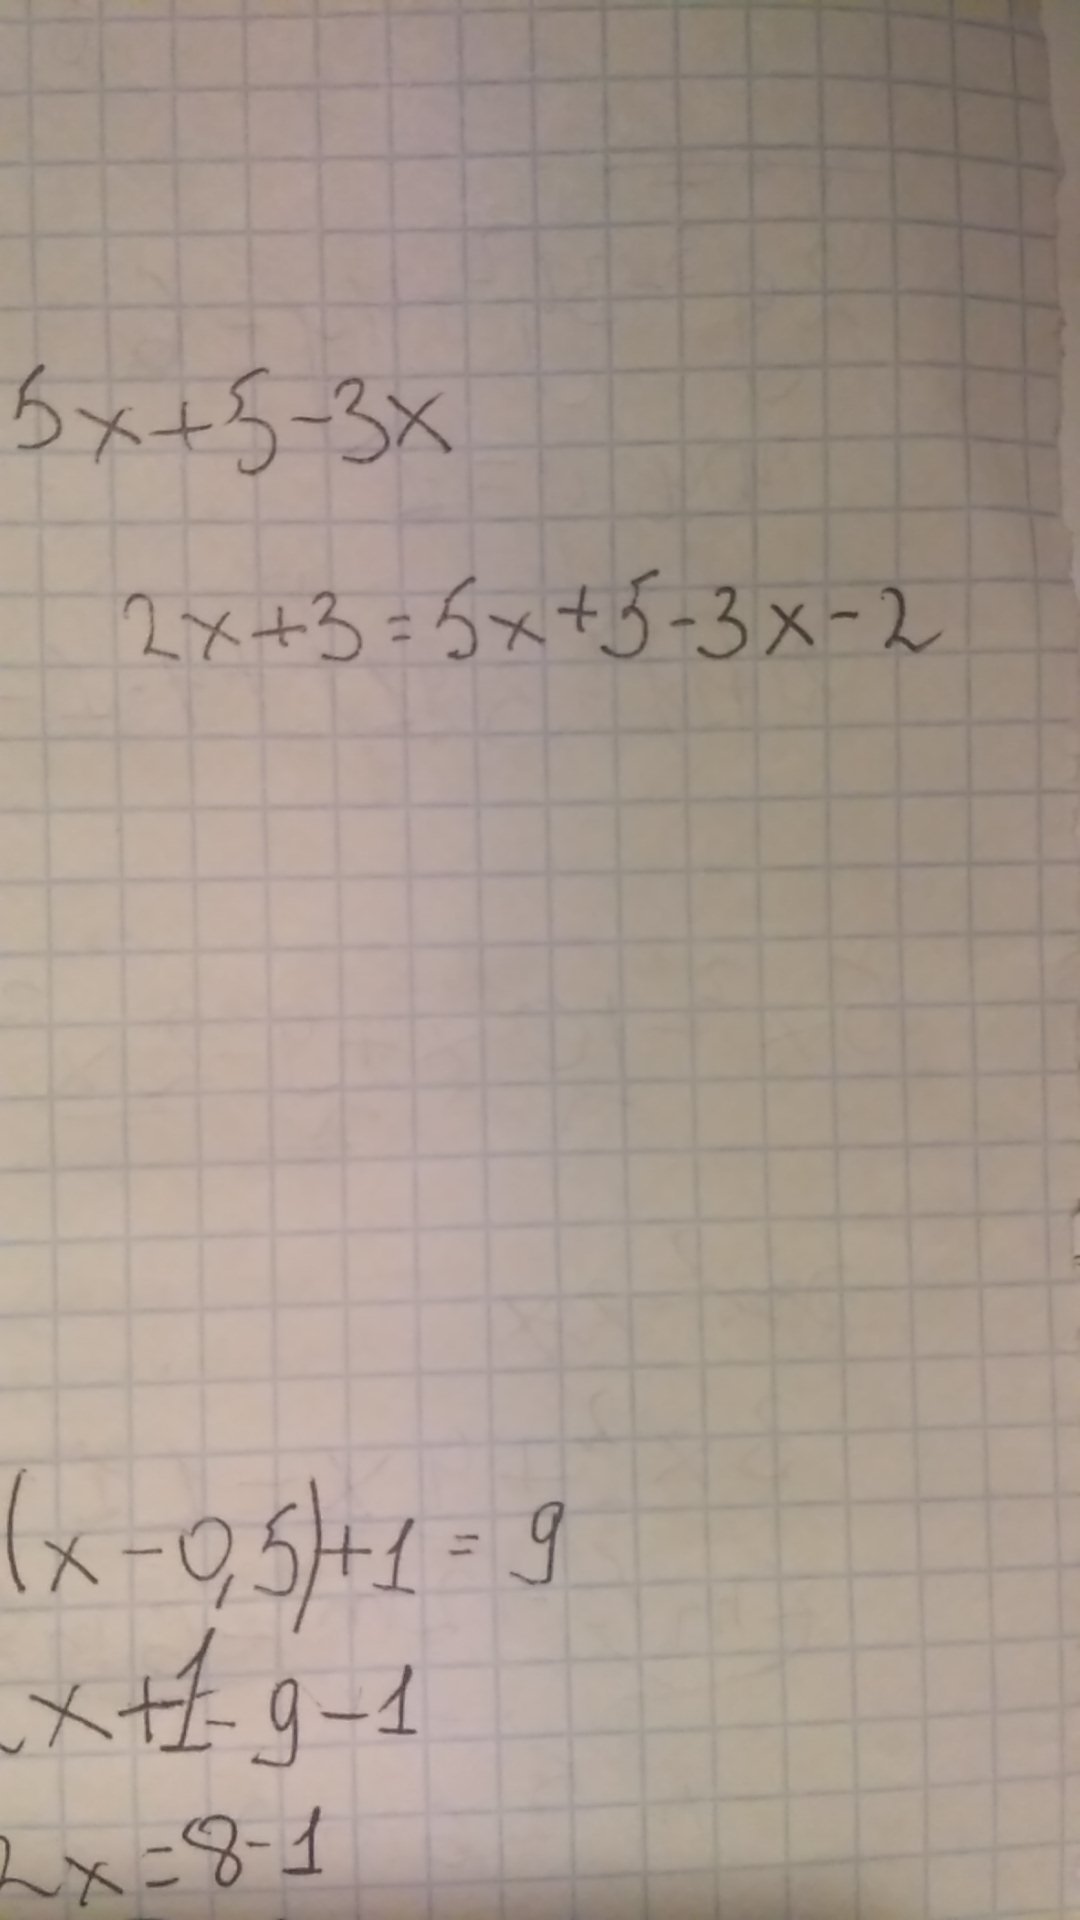 5x+5-3x
2x+3=5x+5-3x-2
(x-0,5)+1=9
x+1=9-1
2x=8-1